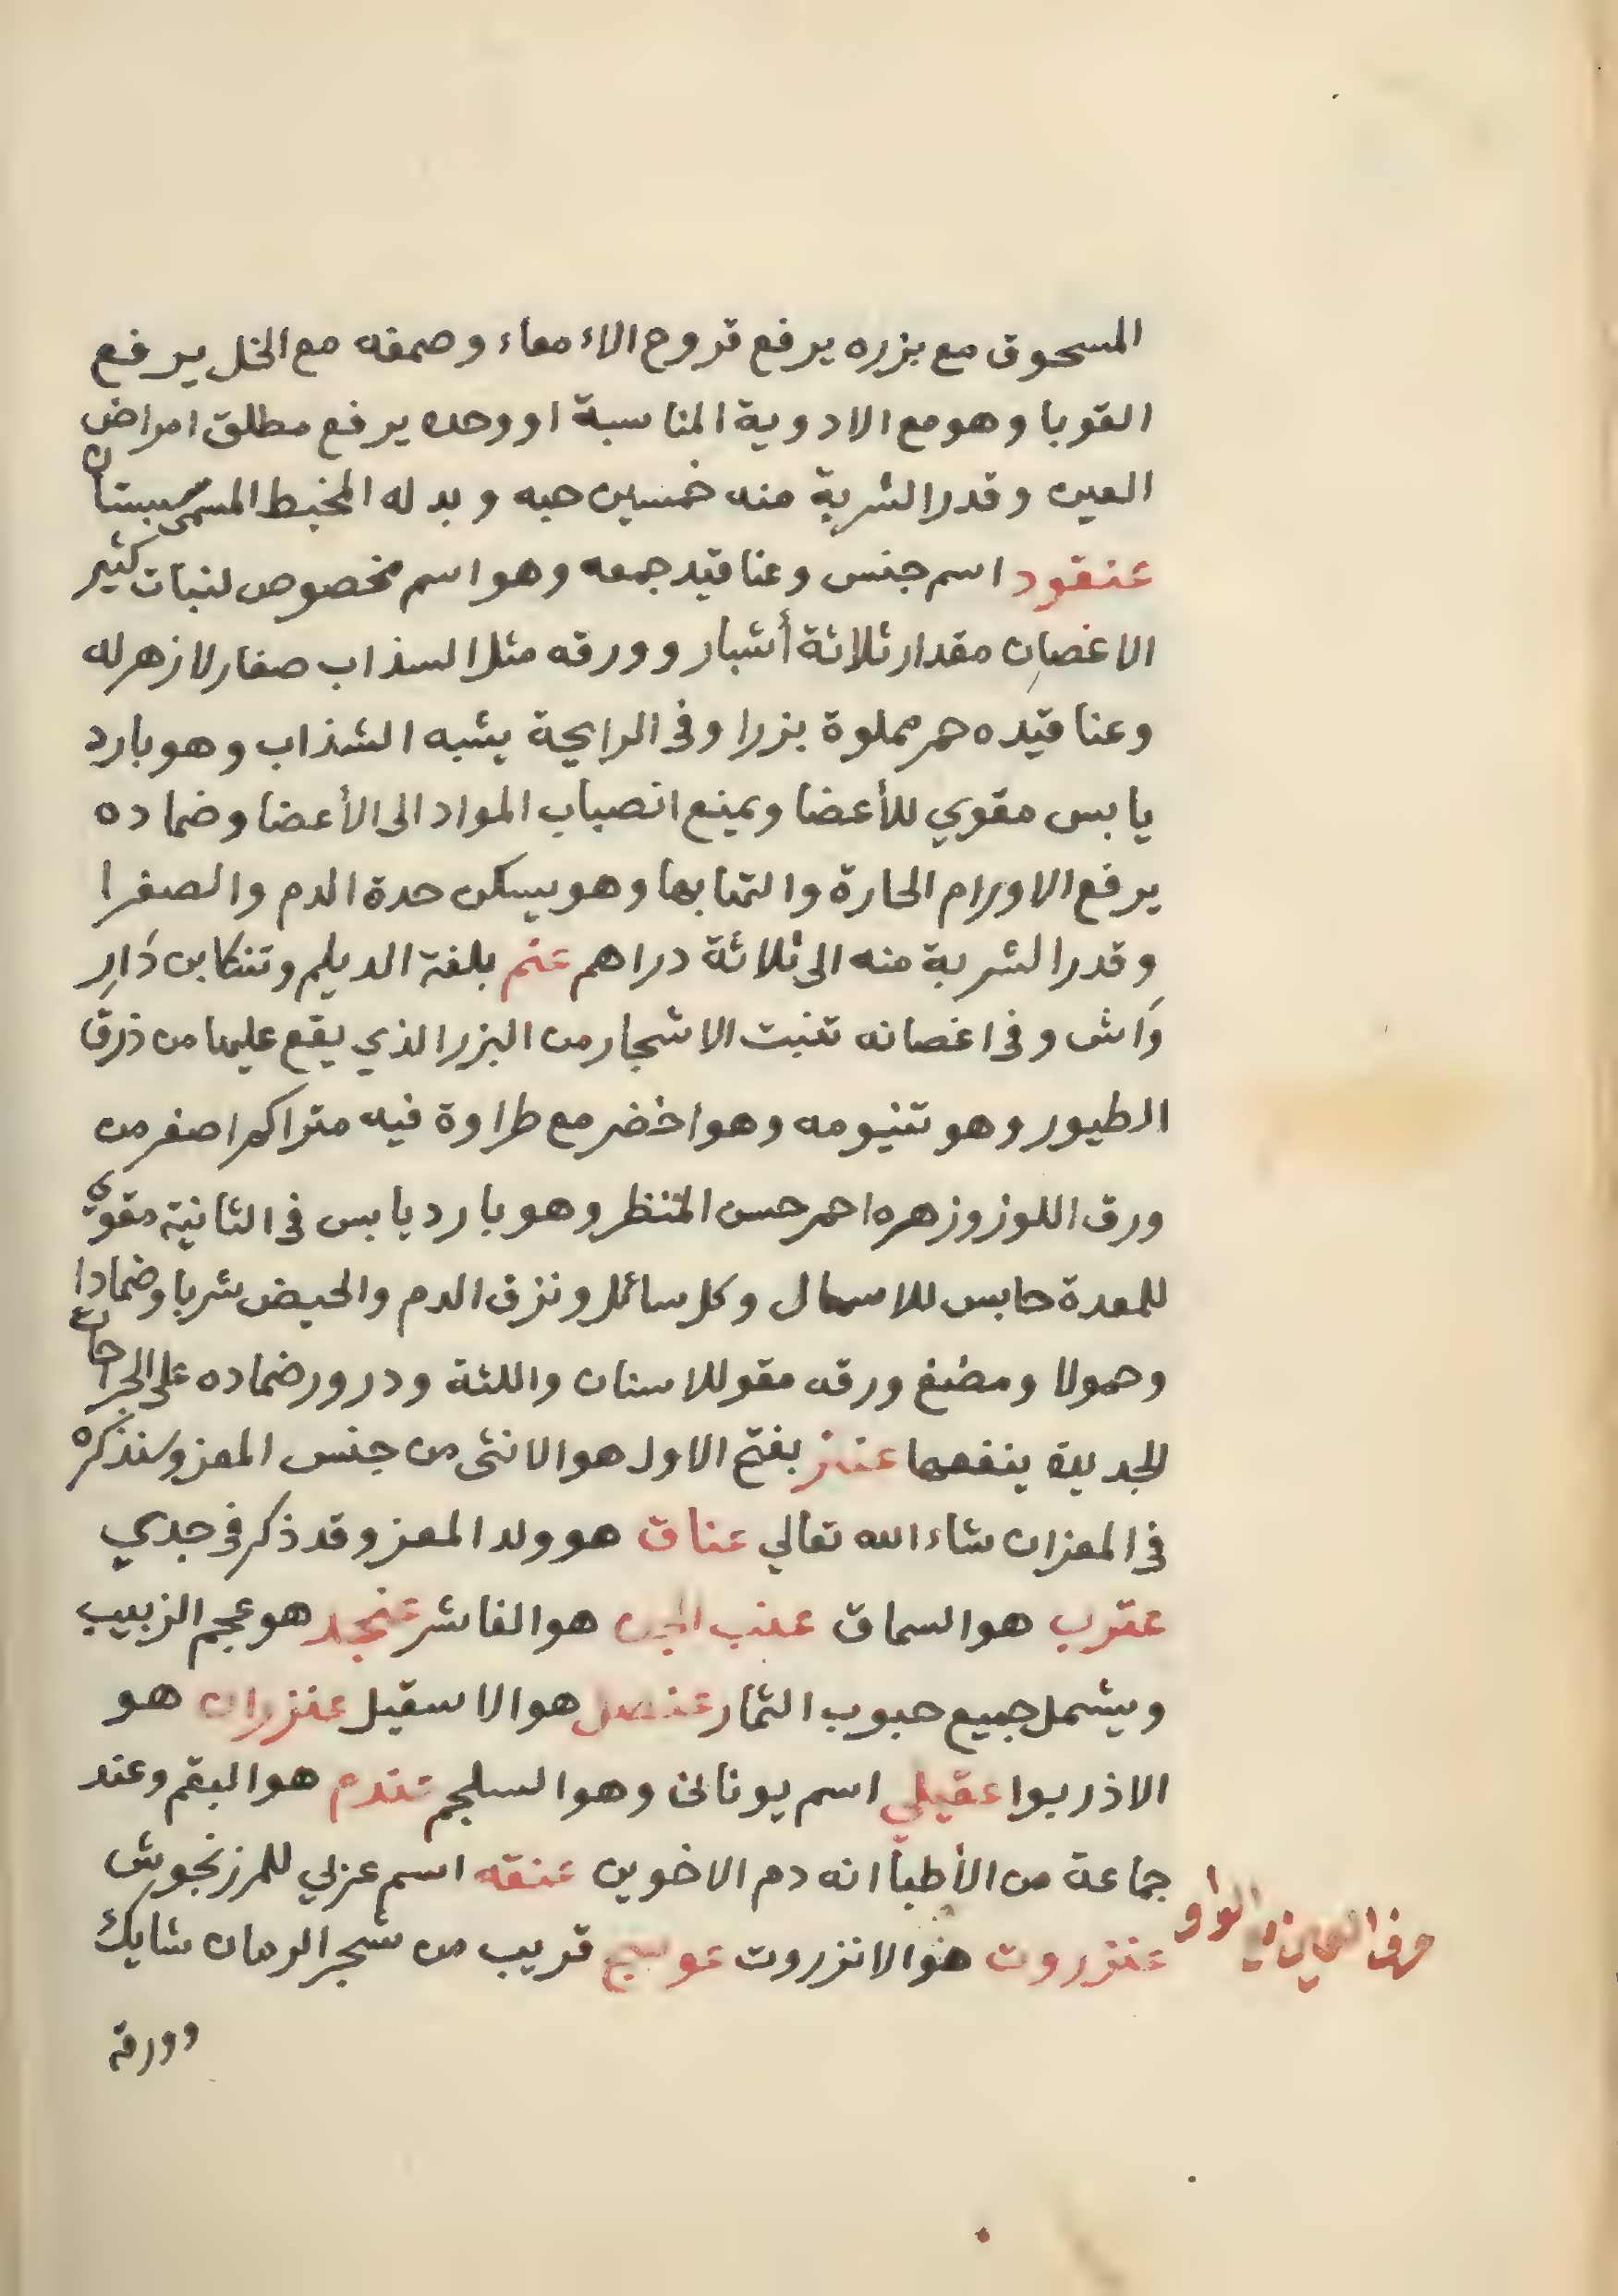 المسحوق مع بزره يرفع قروح الاءمعاء وصمغه مع الخل يرفع
القوبا وهو مع الادوية المناسبة او وحده يرفع مطلق امراض
العين وقدر الشربة منه خمسين حبه وبدله المخيط المسمى سبستان
عنقود اسم جنس وعناقيد جمعه وهو اسم مخصوص لنبات كثير
الاغصان مقدار ثلاثة أشبار وورقه مثل السذاب صغار لا زهر له
وعناقيده حمر مملوة بزرا وفى الرايحة يشبه الشذاب وهو بارد
يابس مقوي للأعضا ويمنع انصباب المواد الى الأعضا وضماده
يرفع الاورام الحارة والتهابها وهو يسكن حدة الدم والصفرا
وقدر الشربة منه الى ثلاثة دراهم عنم بلغة الديلم وتنكابن دَارِ
وَاش وفى اغصانه تنبت الاشجار من البزر الذي يقع عليها من ذرق
الطيور وهو تنيومه وهو اخضر مع طراوة فيه متراكم اصغر من
ورق اللوز وزهره احمر حسن المنظر وهو بارد يابس فى الثانية مقوي
للمعدة حابس للاسهال وكل سائل ونزف الدم والحيض شربا وضمادا
وحمولا ومضغ ورقه مقو للاسنان واللثة ودرور ضماده على الجراحات
الجديدة ينفعها عنز بفتح الاول هو الانثى من جنس المعز وسنذكره
فى المعز ان شاء الله تعالي عناق هو ولد المعز وقد ذكر فى جدي
عقرب هو السماق عنب الجن هو الفاشر عنجد هو عجم الزبيب
ويشمل جميع حبوب الثمار عنصل هو الاسقيل عنزران هو
الاذربوا عقيلي اسم يونانى وهو السلجم عندم هو البقم وعند
جماعة من الأطبأ انه دم الاخوين عنقه اسم عربي للمرزنجوش
عنزروت هو الانزروت عوسج قريب من شجر الرمان شايك
حرف العين الواو
وورقه